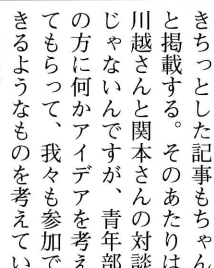 きちっとした記事もちゃん
と掲載する。そのあたりは
川越さんと関本さんの対談
じゃないんですが、青年部
の方に何かアイデアを考え
てもらって、我々も参加で
きるようなものを考えてい